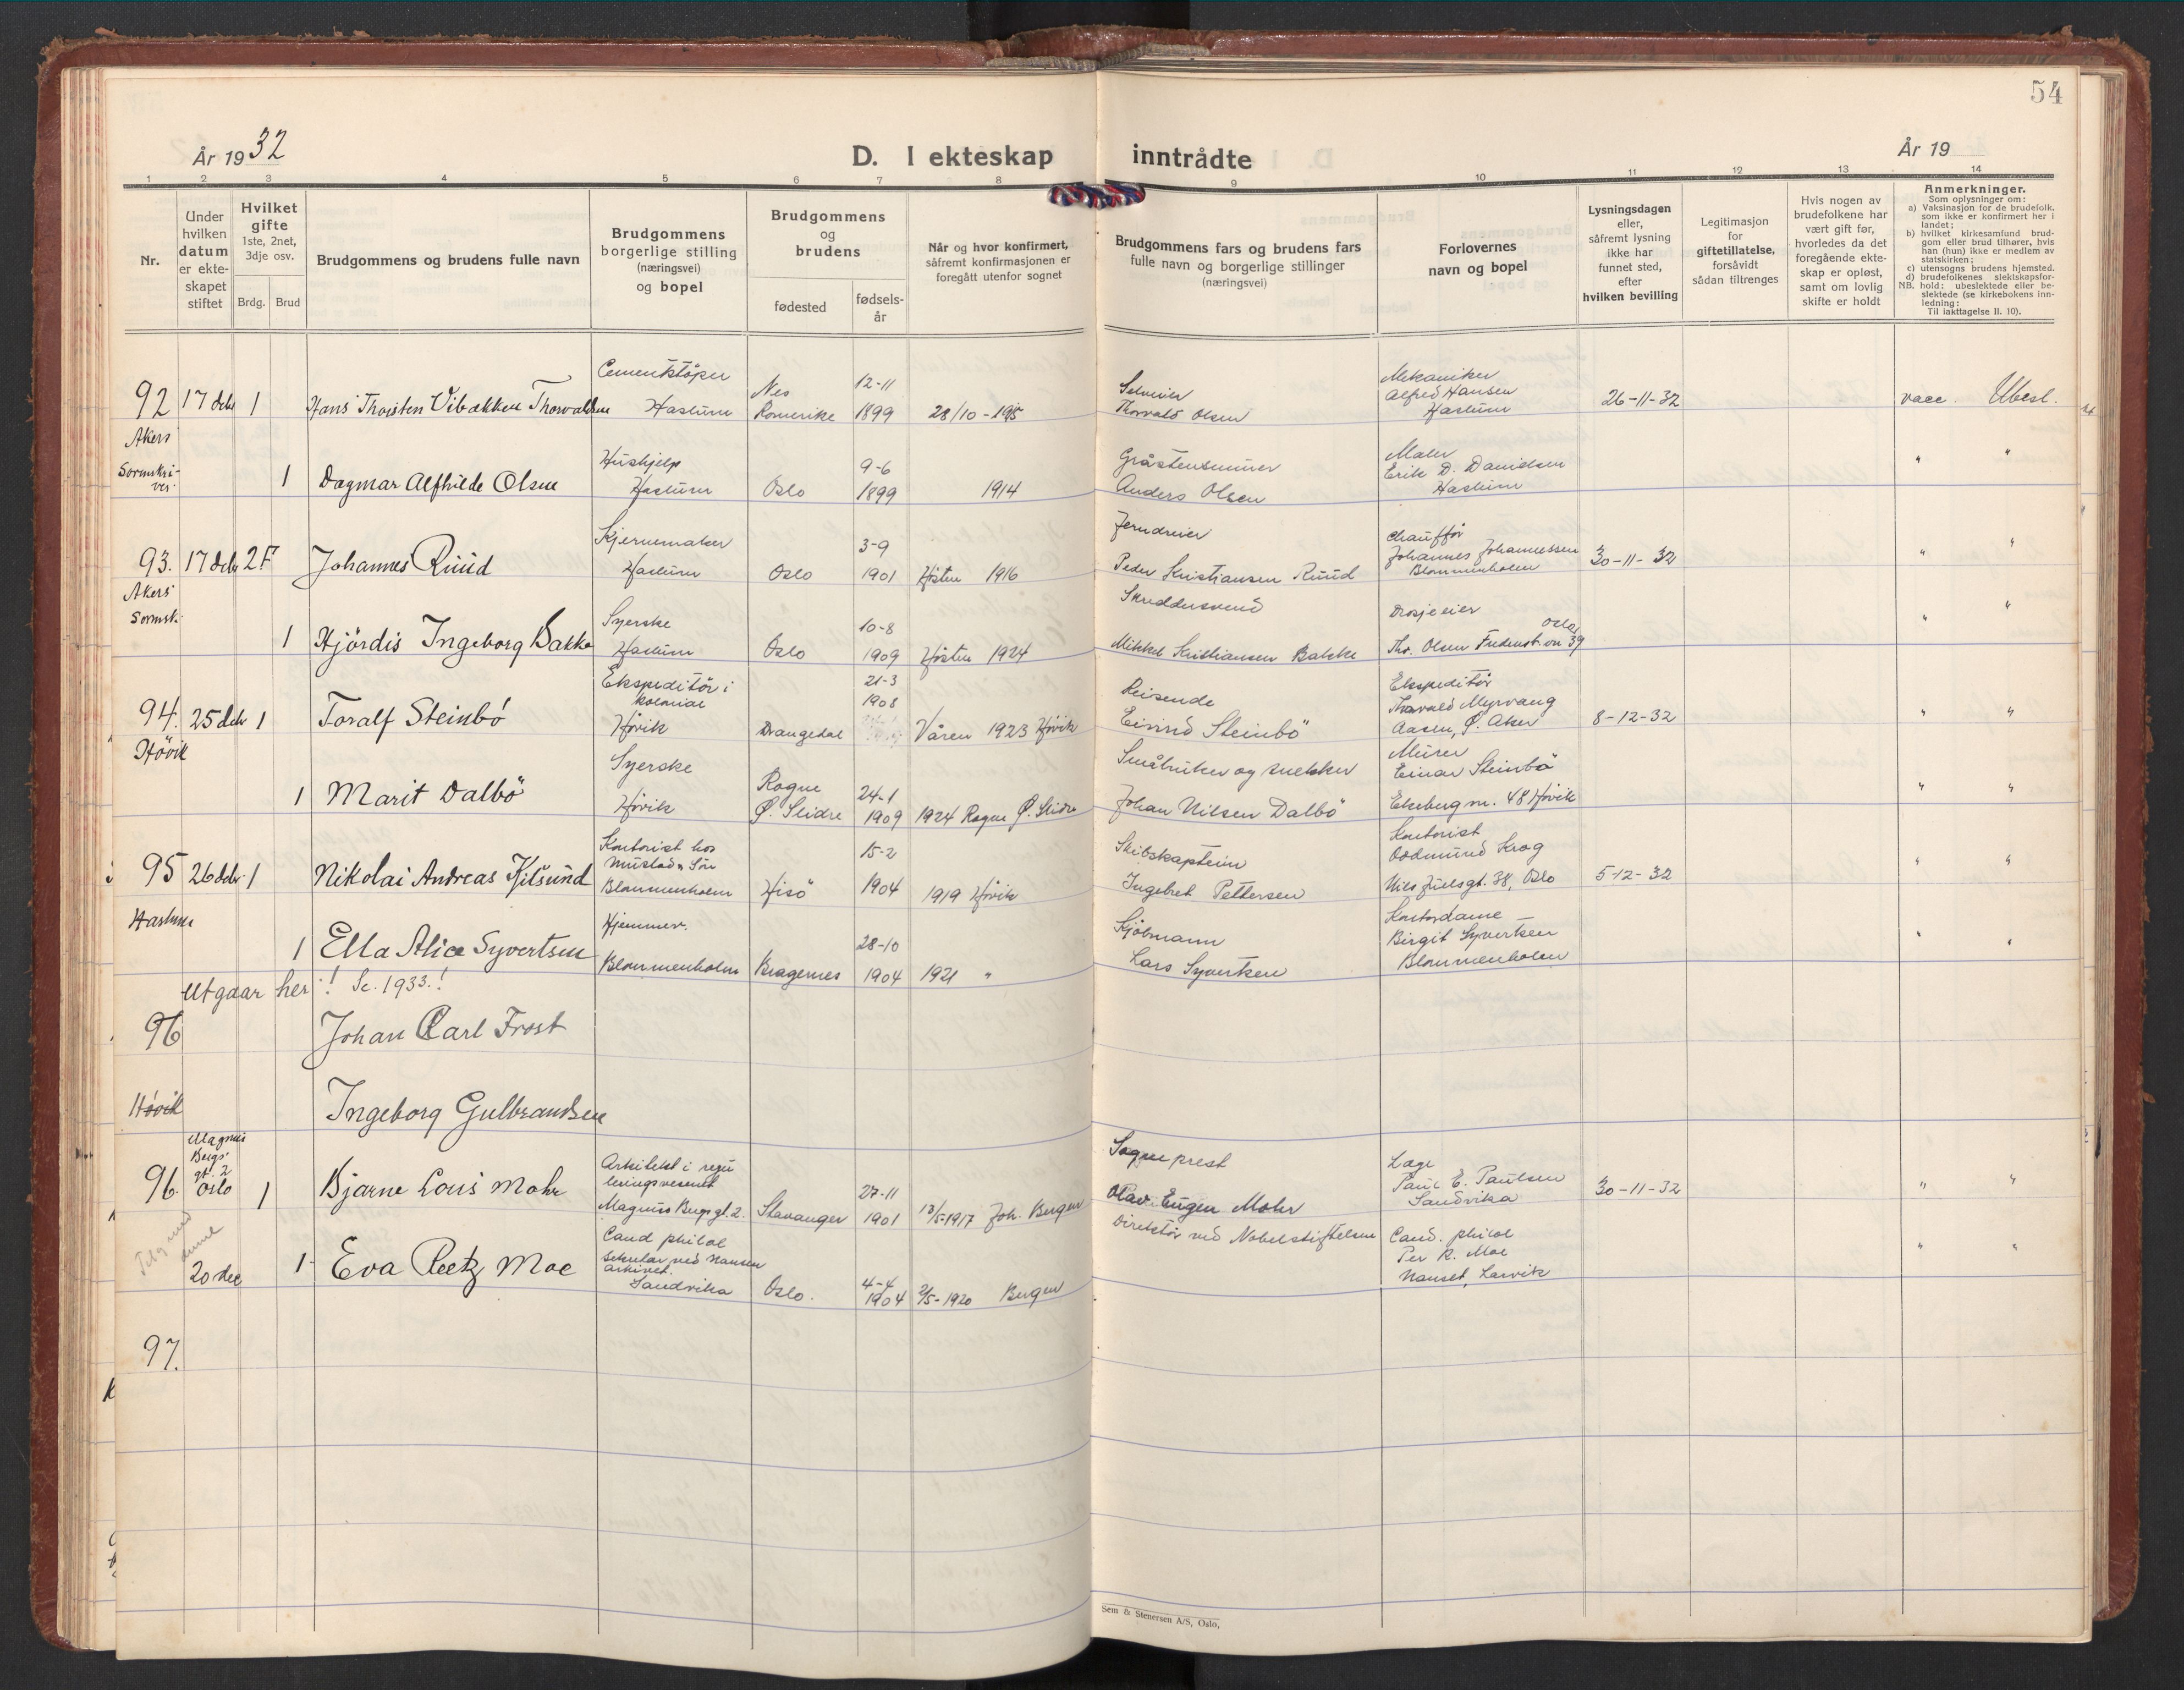 54
År 1932
D. I ekteskap inntrådte
År 19
1 2 3 4 5 6 7 8 9 10 11 12 13 14
Nr.
Under hvilken datum er ekte-skapet stiftet
Hvilket gifte 1ste, 2net, 3dje osv.
Brdg. Brud
Brudgommens og brudens fulle navn
Brudgommens borgerlige stilling (næringsvei) og bopel
Brudgommens og brudens
fødested
fødsels-år
Når og hvor konfirmert, såfremt konfirmasjonen er foregått utenfor sognet
Brudgommens fars og brudens fars fulle navn og borgerlige stillinger (næringsvei)
Forlovernes navn og bopel
Lysningsdagen eller, såfremt lysning ikke har funnet sted, efter hvilken bevilling
Legitimasjon for giftetillatelse, forsåvidt sådan tiltrenges
Hvis nogen av brudefolkene har vært gift før, hvorledes da det foregående ekte-skap er opløst, samt om lovlig skifte er holdt
Anmerkninger.
Som oplysninger om:
a) Vaksinasjon for de brudefolk. som ikke er konfirmert her i landet;
b) hvilket kirkesamfund brud-gom eller brud tilhører, hvis han (hun) ikke er medlem av statskirken;
c) utensogns brudens hjemsted.
d) brudefolkenes slektskapsfor-hold: ubeslektede eller be-slektede (se kirkebokens inn-ledning:
NB.
Til iakttagelse II. 10).
Cementstöper 12-11 Mekaniker
92 17 debr 1 Hans Thorsten Vibakken Thorvaldsen Haslum Nes Romerike 1899 28/10-1915 Thorvald Olsen Alfred Hansen Haslum 26-11-32 vacc. Ubesl.
Akers Sorenskri-ver
Hushjelp 9-6 Gråstensminer Maler
1 Dagmar Alfhilde Olsen Haslum Oslo 1899 1914 Anders Olsen Erik D. Danielsen Haslum " "
Kjernemaker 3-9 Jerndreier Chauffør
93. 17 debr 2 F Johannes Ruud Haslum Oslo 1901 Høsten 1916 Peder Kristiansen Ruud Johannes Johannessen Blommenholm 30-11-32 " "
Akers Sorensk.
Syerske 10-8 Skreddersvend Drosjeeier Oslo
1 Hjördis Ingeborg Bakke Haslum Oslo 1909 Høsten 1924 Mikkel Kristiansen Bakke Th. Olsen Fredensb.vn 39 " "
Ekspeditör i kolonial 21-3 1908 Reisende Ekspeditör
94. 25 debr 1 Toralf Steinbö Høvik Drangedal Våren 1923 Høvik Eivind Steinbö Thorvald Myrvang Aasen, Ø. Aker 8-12-32 " "
Hövik
Syerske Rogne 24-1 Småbruker og snekker Murer Einar Steinbö
1 Marit Dalbö Høvik Ø. Slidre 1909 1924 Rogne Ø. Slidre Johan Nilsen Dalbö Ekebergvn. 48 Høvik " "
Kontorist hos Mustad & Søn 15-2 Skibskaptein Kontorist
95 26 debr. 1 Nikolai Andreas Kilsund Blommenholm Hisö 1904 1919 Høvik Ingebret Pettersen Oddmund Krog Nils Juelsgt. 38, Oslo 5-12-32 " "
Haslum
Hjemmev. 28-10 Kjöbmann Kontordame
1 Ella Alice Syvertsen Blommenholm Bragernes 1904 1921 " Lars Syvertsen Birgit Syvertsen Blommenholm " "
Utgaar her! Se. 1933.!
96 Johan Carl Frost
Hövik Ingeborg Gulbrandsen
Magnus Bergs' gt. 2 Oslo
Arkitekt i regu-leringsvesenet 27-11 Sogneprest Læge
96. 1 Bjarne Louis Mohr Magnus Bergs gt. 2. Stavanger 1901 13/5-1917 Joh. Bergen Olav Eugen Mohr Paul E. Paulsen Sandvika 30-11-32 " "
Cand philol Sekretær ved Nansen arkivet. Direktör ved Nobelstiftelsen Cand. philol
20 dec 1 Eva Reetz Moe Sandvika Oslo. 4-4 1904 2/5-1920 Bergen Per R. Moe Nanset, Larvik " "
97.
Sem & Stenersen A/S, Oslo,